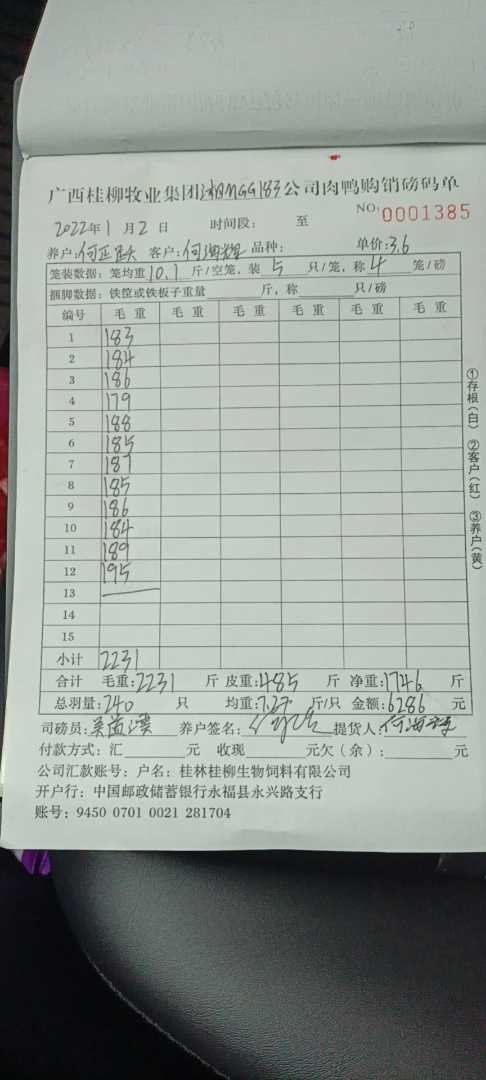 广西桂柳牧业集团湘BNGG183公司肉鸭购销磅码单
2022年1月2日 时间段: 至 NO:0001385
养户:何正跃 客户:何海辉 品种: 单价:3.6
笼装数据: 笼均重10.1斤/空笼, 装5只/笼, 称4笼/磅
捆脚数据: 铁筐或铁板子重量 斤, 称 只/磅
编号 毛重 毛重 毛重 毛重 毛重 毛重
1 183
2 184
3 186
4 179
5 188
6 185
7 187
8 185
9 186
10 184
11 189
12 195
13
14
15
小计 2231
合计 毛重:2231斤 皮重:485斤 净重:1746斤
总羽量:240只 均重:7.27斤/只 金额:6286元
司磅员: 养户签名: 提货人:何海辉
付款方式: 汇 元 收现 元欠(余): 元
公司汇款账号: 户名: 桂林桂柳生物饲料有限公司
开户行: 中国邮政储蓄银行永福县永兴路支行
账号: 9450 0701 0021 281704
①存根(白) ②客户(红) ③养户(黄)